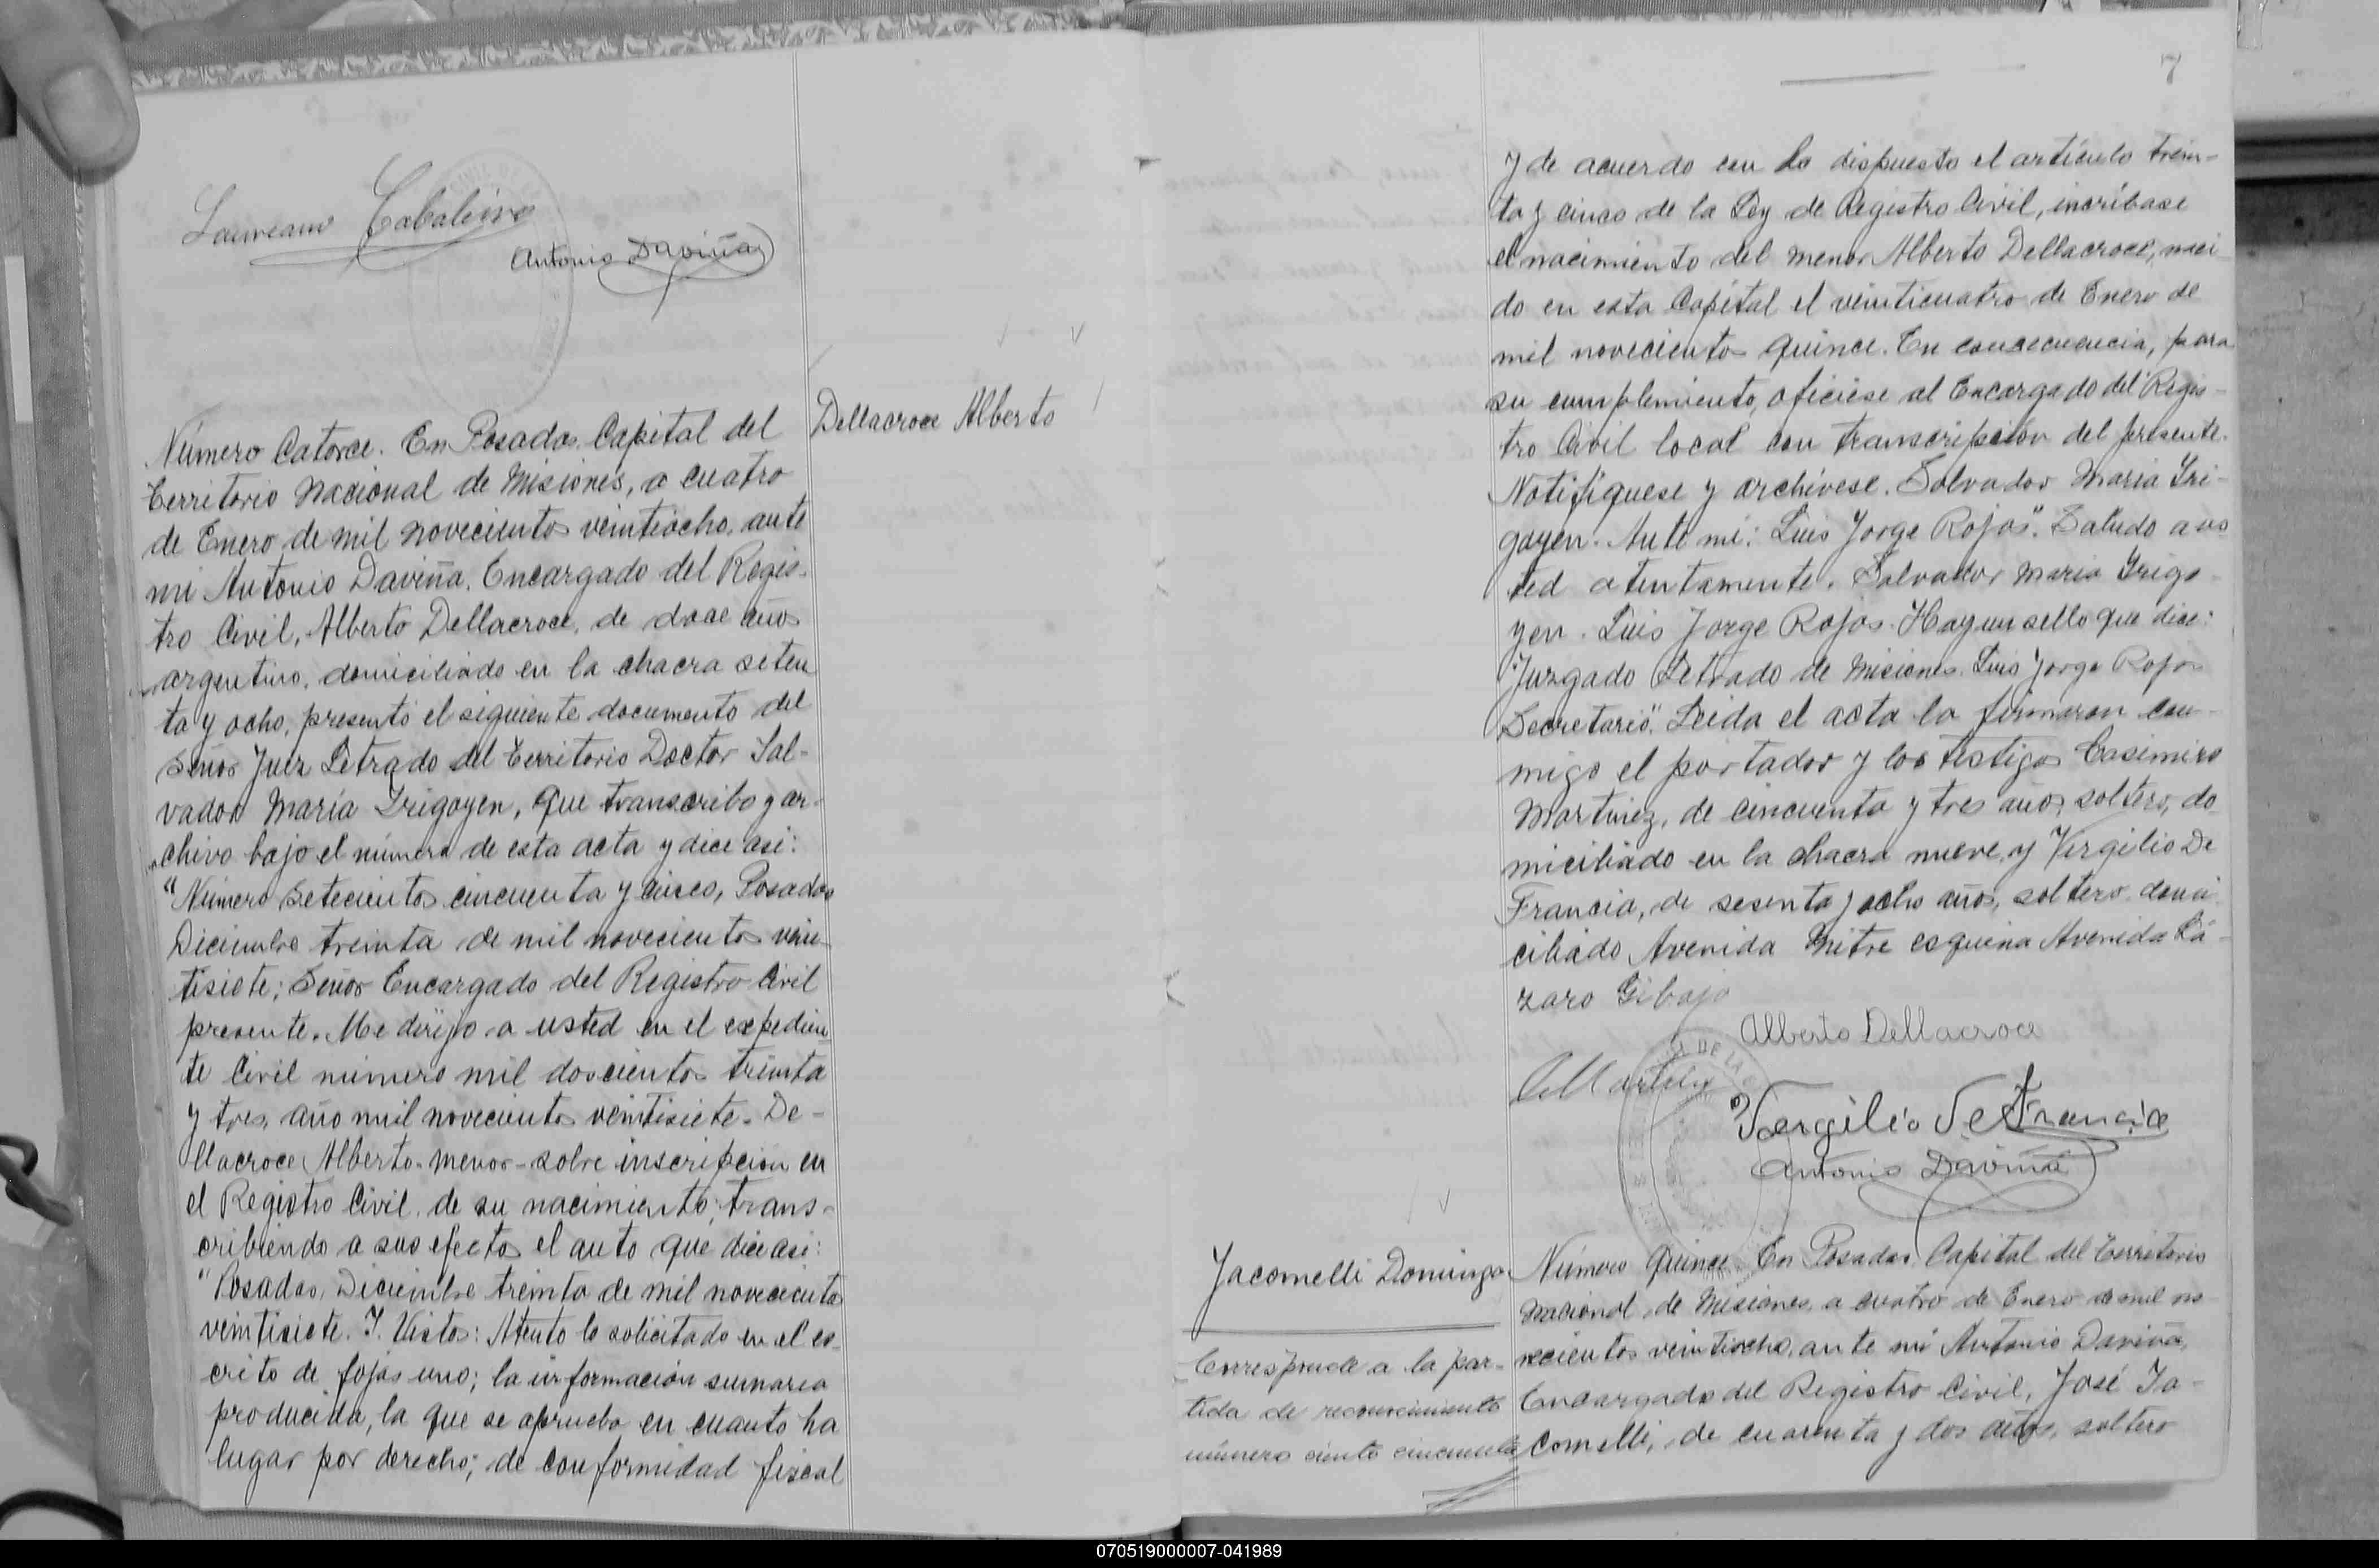 Laureano Cabaleiro
Antonio Daviña
Dellacroce Alberto
Número Catorce. En Posadas, Capital del
Territorio Nacional de Misiones, a cuatro
de Enero de mil novecientos veintiocho, ante
mi Antonio Daviña, Encargado del Regis-
tro Civil, Alberto Dellacroce, de doce años
argentino, domiciliado en la chacra seten
ta y ocho, presentó el siguiente documento del
Señor Juez Letrado del Territorio Doctor Sal-
vador María Irigoyen, que transcribo y ar-
chivo bajo el número de esta acta y dice asi:
"Número Setecientos cincuenta y cinco, Posadas
Diciembre treinta de mil novecientos vein-
tisiete; Señor Encargado del Registro Civil
presente. Me dirijo a usted en el expedien
te Civil número mil doscientos treinta
y tres, año mil novecientos veintisiete. De-
llacroce Alberto-menor-sobre inscripción en
el Registro Civil de su nacimiento; trans-
cribiendo a sus efectos el auto que dice asi:
"Posadas, Diciembre treinta de mil novecientos
veintisiete. Y. Vistos: Atento lo solicitado en el es-
crito de fojas uno; la información sumaria
producida, la que se aprueba en cuanto ha
lugar por derecho; de conformidad fiscal
7
y de acuerdo con lo dispuesto el artículo trein-
ta y cinco de la Ley de Registro Civil, incríbase
el nacimiento del menor Alberto Dellacroce, naci
do en esta Capital el veinticuatro de Enero de
mil novecientos quince. En consecuencia, para
su cumplimiento, ofíciese al Encargado del Regis-
tro Civil local con transcripción del presente.
Notifíquese y archívese. Salvador María Iri-
goyen. Ante mí: Luis Jorge Rojas". Saludo a us
ted atentamente. Salvador María Irigo-
yen. Luis Jorge Rojas. Hay un sello que dice:
"Juzgado Letrado de Misiones. Luis Jorge Rojas
Secretario". Leida el acta la firmaron con-
migo el portador y los testigos Casimiro
Martinez, de cincuenta y tres años, soltero, do-
miciliado en la chacra nueve, y Virgilio De
Francia, de sesenta y ocho años, soltero, domi
ciliado Avenida Mitre esquina Avenida Lá-
zaro Gibaja
Alberto Dellacroce
CMartinez
Vergilio De Francia
Antonio Daviña
Jacomelli Domingo
Corresponde a la par-
tida de reconocimiento
número ciento cincuenta
Número Quince. En Posadas, Capital del Territorio
Nacional de Misiones, a cuatro de Enero de mil no
vecientos veintiocho, ante mi Antonio Daviña,
Encargado del Registro Civil, José Ja-
comelli, de cuarenta y dos años, soltero
070519000007-041989